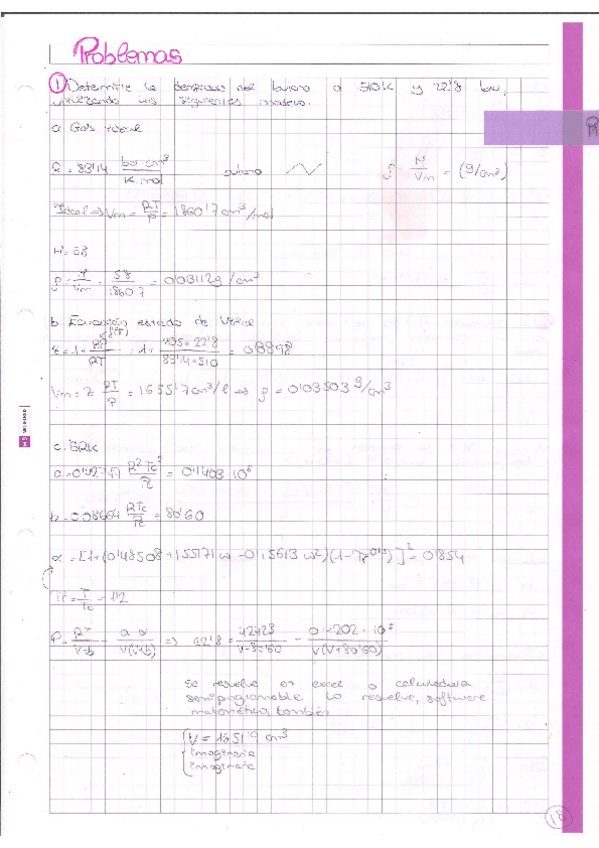 Problemas
① Determine la densidad del butano a 510K y 22'8 bar, utilizando los siguientes modelos.
a Gas ideal
R = 83'14 bar cm³ / K mol   butano   ρ = M / Vm = (g/cm³)
Ideal ⇒ Vm = RT / P = 1860'7 cm³/mol
M = 58
ρ = M / Vm = 58 / 1860'7 = 0'0312 g/cm³
b. Ecuación estado de Virial
z = 1 + BP / RT = 1 + 205 · 22'8 / 83'14 · 510 = 0'8898
Vm = z RT / P = 1655'7 cm³/ ⇒ ρ = 0'03503 g/cm³
c. SRK
a = 0'42747 R² Tc² / Pc = 0'1403 10⁶
b = 0.08664 RTc / Pc = 80'60
α = [1 + (0'48508 + 1'55171 ω - 0'15613 ω²) (1 - Tr^0'5)]² = 0'854
Tr = T / Tc = 1'2
P = RT / V-b - a α / V(V+b) ⇒ 22'8 = 42423 / V-80'60 - / V(V+80'60)
Se resuelve en excel o calculadora
semiprogramable lo resuelve, software
matemático, también
V = 1651'9 cm³
imaginaria
imaginaria
18